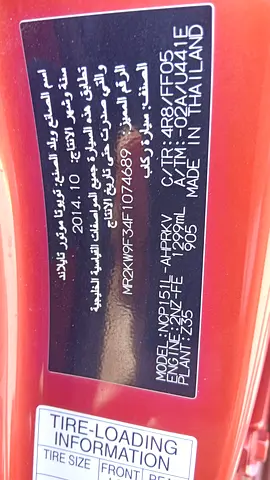 اسم الصانع وبلد الصنع: تويوتا موتور تايلاند
سنة وشهر الانتاج: 10 . 2014
تطابق هذه السيارة جميع المواصفات القياسية الخليجية
والتي صدرت حتى تاريخ الانتاج
الرقم المميز: MR2KW9F34F1074689
الصنف: سيارة ركاب
MODEL:NCP151L-AHPRKV C/TR:4R8/FF05
ENGINE:2NZ-FE 1299mL A/TM:-02A/U441E
PLANT:Z35 905 MADE IN THAILAND
TIRE-LOADING
INFORMATION
TIRE SIZE FRONT